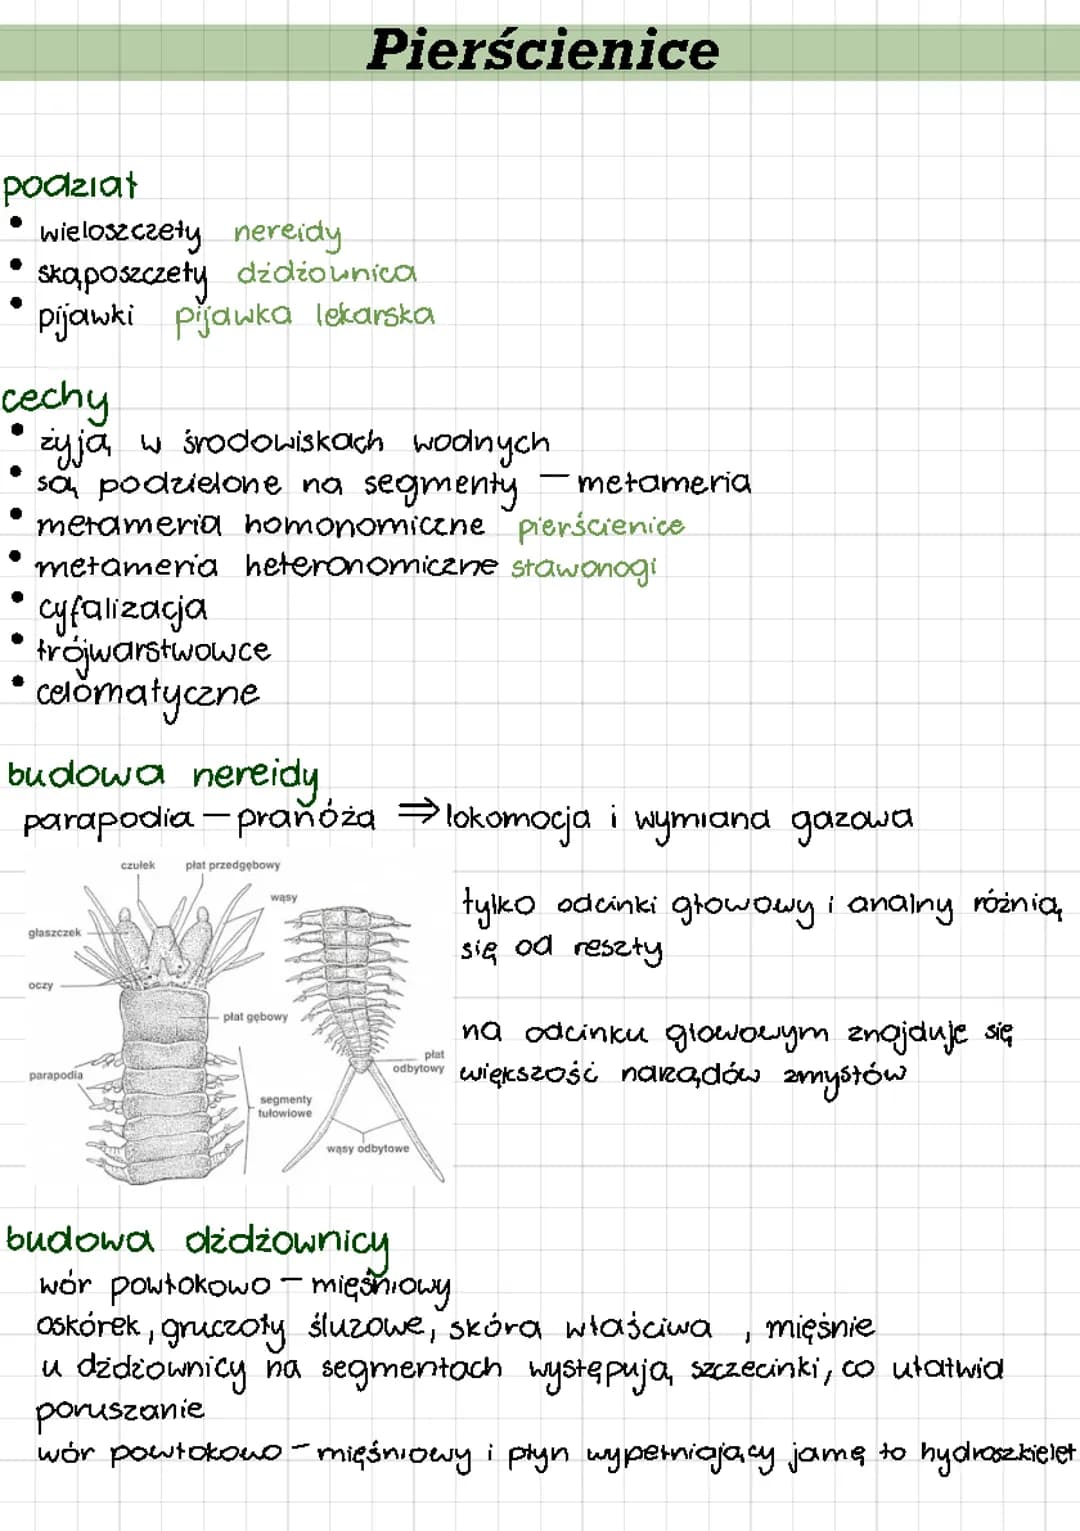 Pierścienice
podział
• wieloszczety nereidy
• skąposzczety dżdżownica
• pijawki pijawka lekarska
cechy
• żyją w środowiskach wodnych
• są podzielone na segmenty – metameria
• metameria homonomiczne pierścienice
• metameria heteronomiczne stawonogi
• cyfalizacja
• trójwarstwowce
• celomatyczne
budowa nereidy
parapodia – pranóża ⇒ lokomocja i wymiana gazowa
czułek płat przedgębowy
wąsy
głaszczek
oczy
płat gębowy
parapodia
płat
odbytowy
segmenty
tułowiowe
wąsy odbytowe
tylko odcinki głowowy i analny różnią
się od reszty
na odcinku głowowym znajduje się
większość narządów zmysłów
budowa dżdżownicy
wór powłokowo – mięśniowy
oskórek, gruczoły śluzowe, skóra właściwa , mięśnie
u dżdżownicy na segmentach występują szczecinki, co ułatwia
poruszanie
wór powłokowo – mięśniowy i płyn wypełniający jamę to hydroszkielet